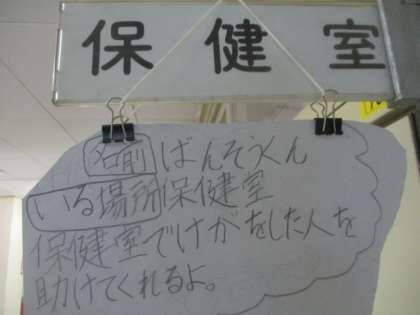 保健室
名前 ばんそうくん
いる場所 保健室
保健室でけがをした人を
助けてくれるよ。